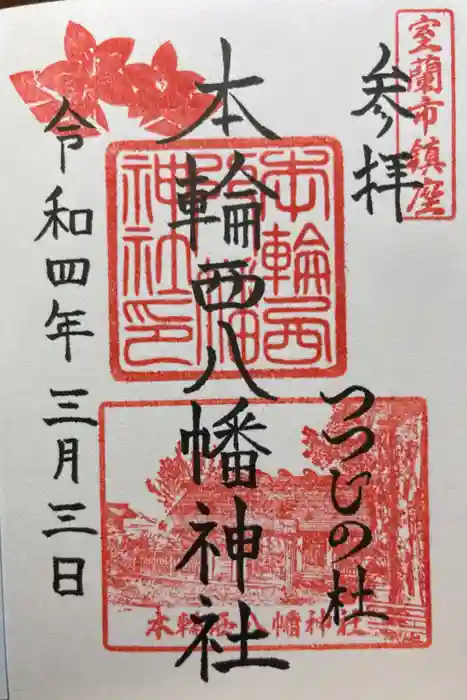 室蘭市鎮座
参拝
つつじの杜
本輪西八幡神社
令和四年三月三日
本輪西八幡神社印
本輪西八幡神社